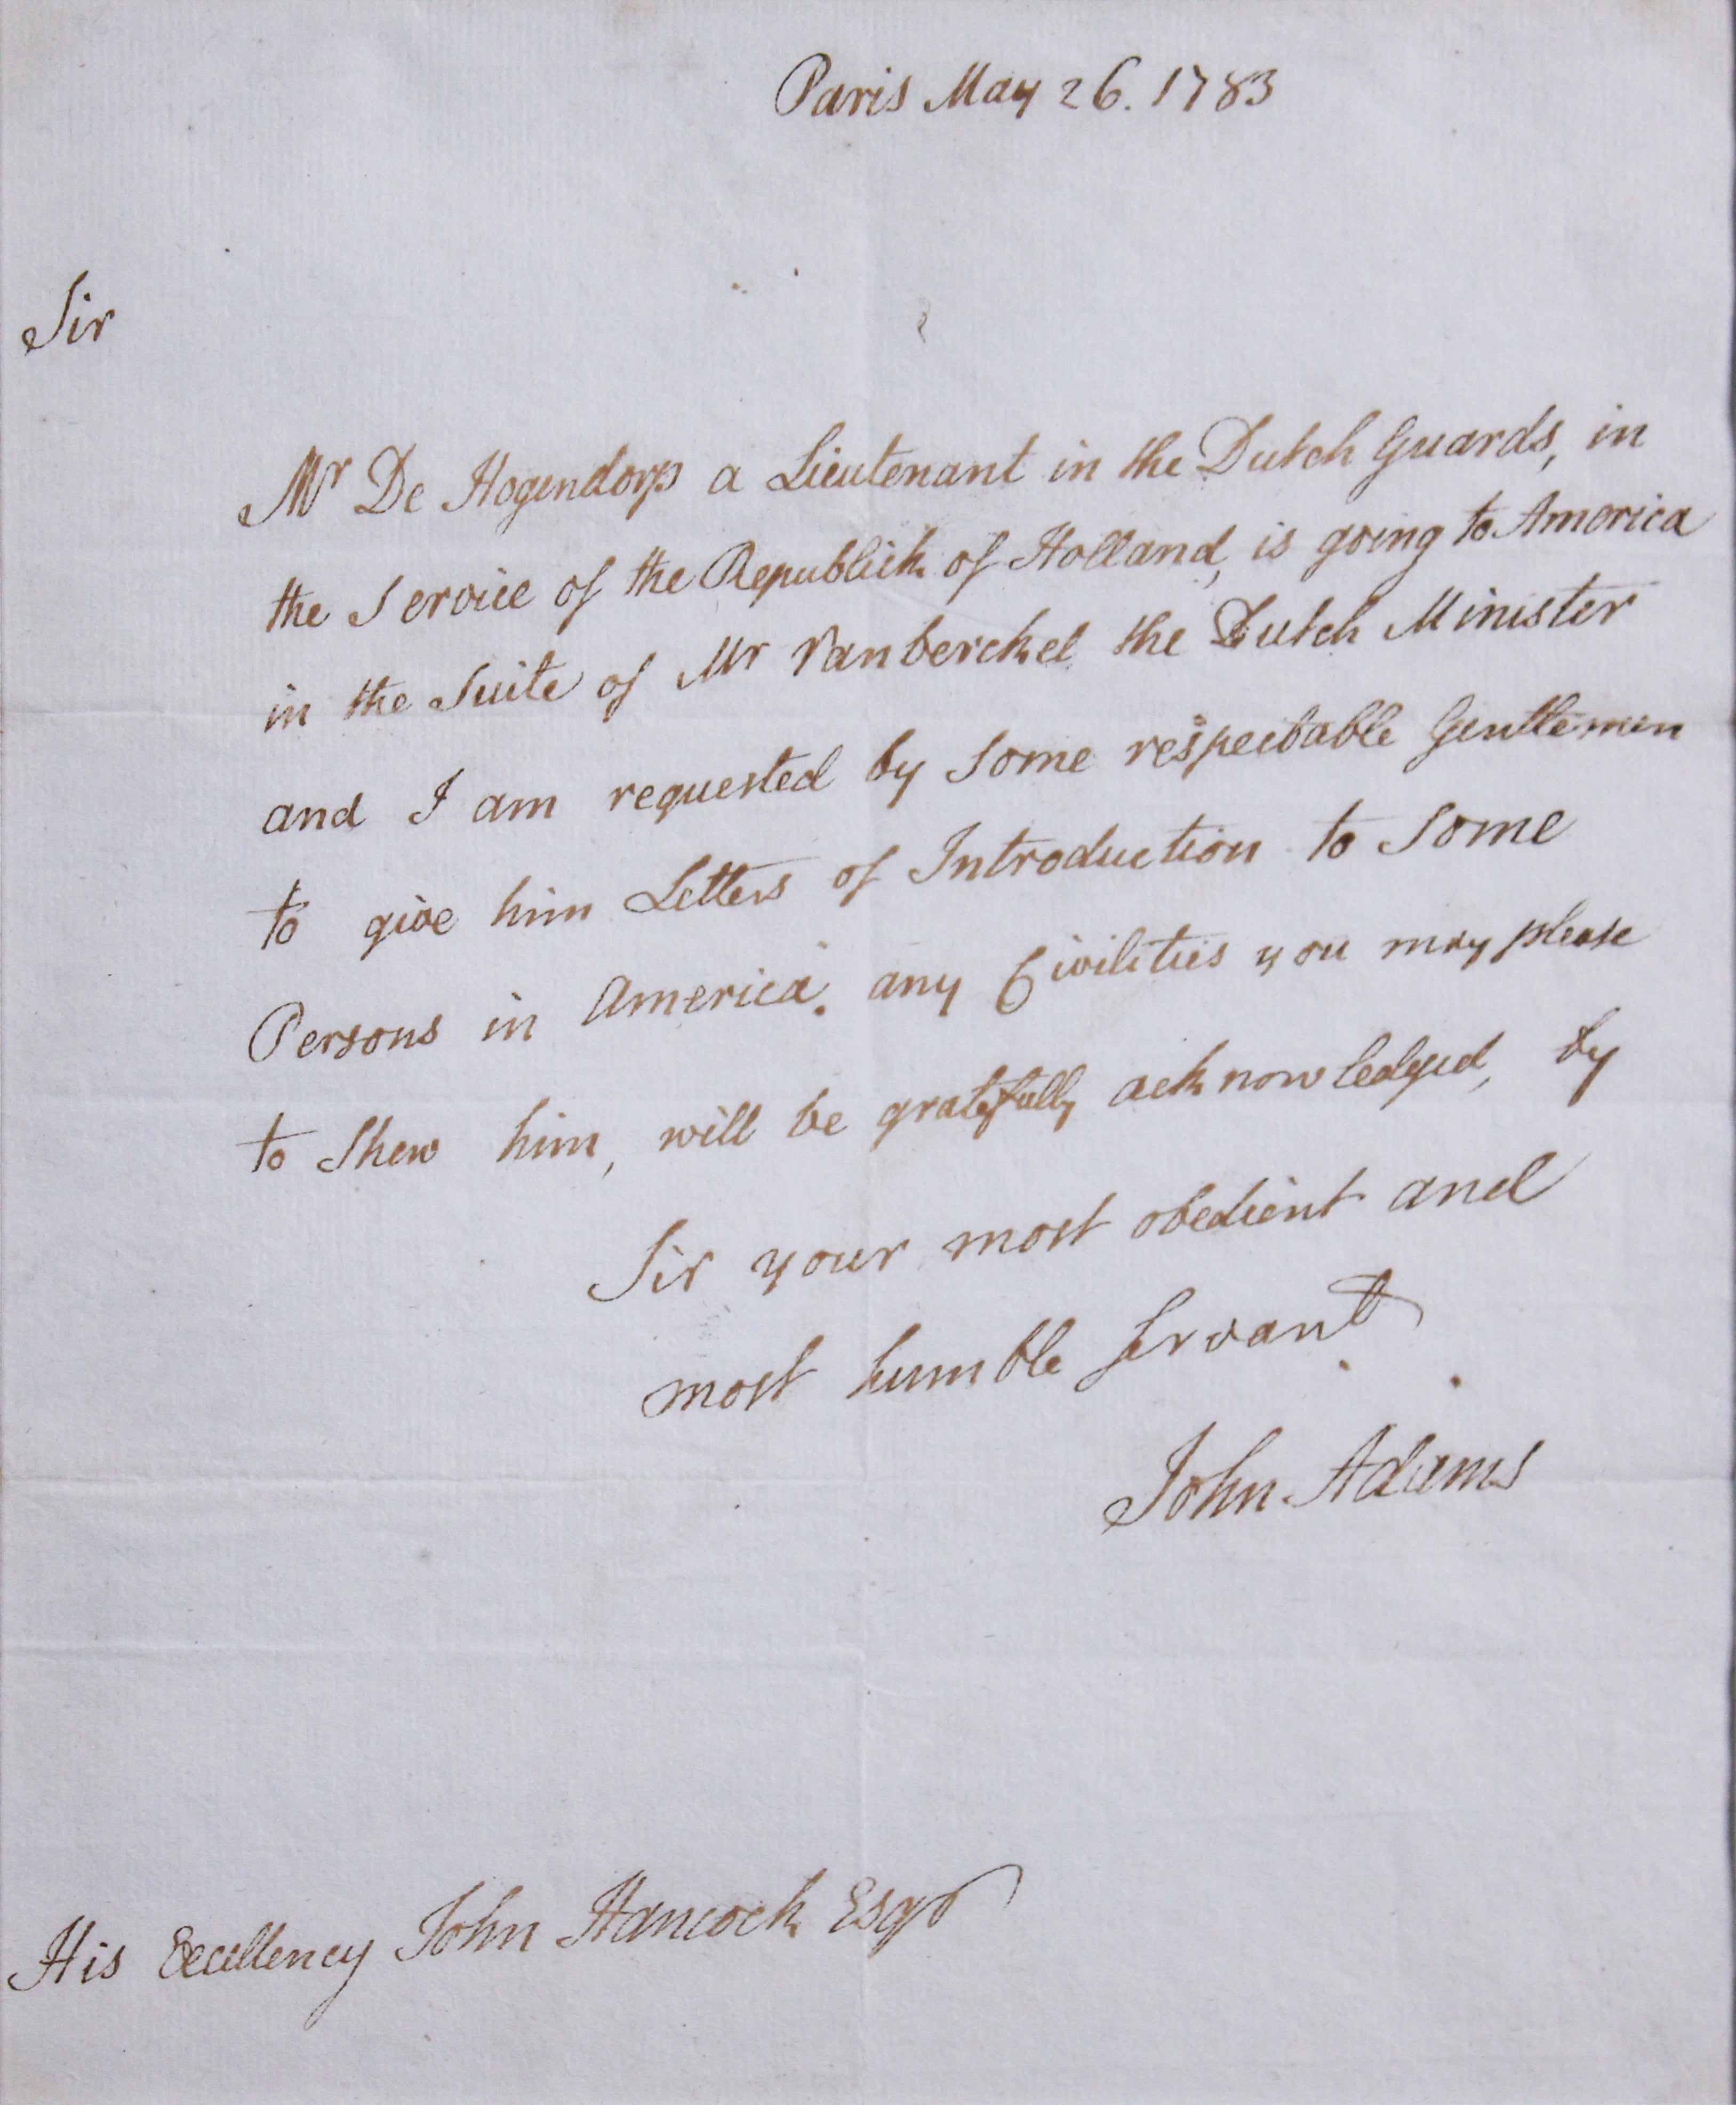 Paris May 26. 1783
Sir
Mr De Hogendorp a Lieutenant in the Dutch Guards, in
the Service of the Republick of Holland, is going to America
in the Suite of Mr Vanberckel the Dutch Minister
and I am requested by Some respectable Gentlemen
to give him Letters of Introduction to Some
Persons in America. any Civilities you may please
to Shew him, will be gratefully acknowledged, by
Sir your most obedient and
most humble Servant
John Adams
His Excellency John Hancock Esqr